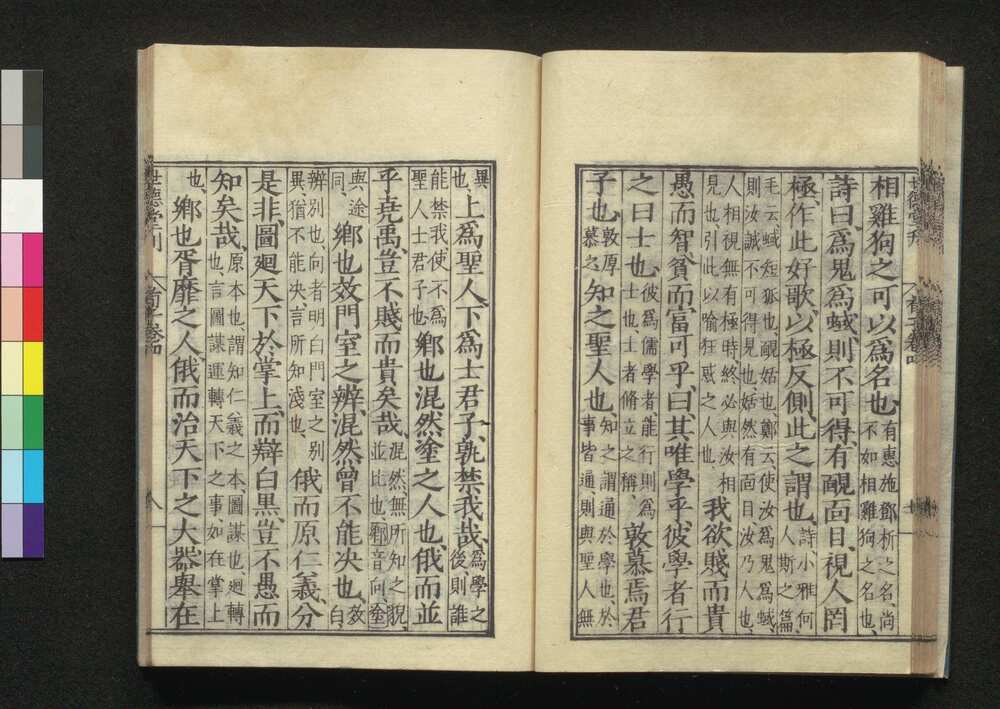 相雞狗之可以爲名也有惠施鄧析之名尚不如相雞狗之名也
詩曰爲鬼爲蜮則不可得有靦面目視人罔
極作此好歌以極反側此之謂也詩小雅何人斯之篇
毛云蜮短狐也靦姑也鄭云使汝爲鬼爲蜮則汝誠不可得見也姑然有面目汝乃人也
人相視無有極時終必與汝相見也引此以喻狂惑之人也我欲賤而貴
愚而智貧而富可乎曰其唯學乎彼學者行
之曰士也彼爲儒學者能行則爲士也士者脩立之稱敦慕焉君
子也敦厚慕之知之聖人也知之謂通於學也於事皆通則與聖人無
異也上爲聖人下爲士君子孰禁我哉爲學之後則誰
能禁我使不爲聖人士君子也鄉也混然塗之人也俄而並
乎堯禹豈不賤而貴矣哉混然無所知之貌並比也鄉音向塗
與途同鄉也效門室之辨混然曾不能决也效白
辨別也向者明白門室之别異猶不能决言所知淺也俄而原仁義分
是非圖廻天下於掌上而辯白黑豈不愚而
知矣哉原本也謂知仁義之本圖謀也廻轉也言圖謀運轉天下之事如在掌上
也鄉也胥靡之人俄而治天下之大器舉在
世德堂刊
荀子卷四